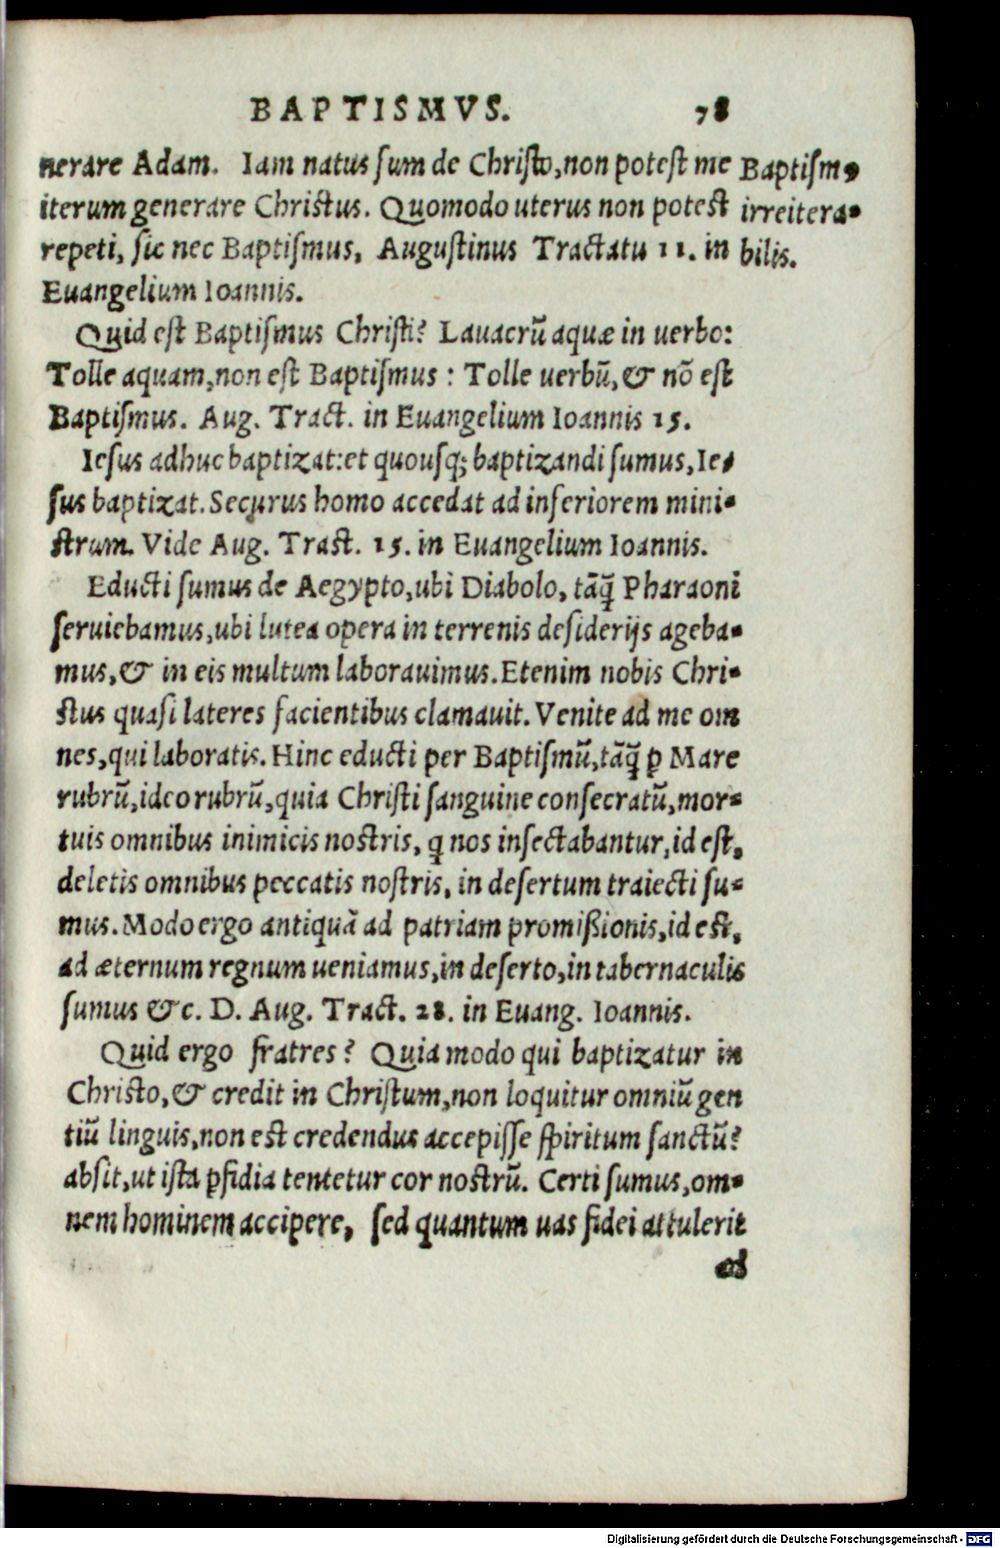 BAPTISMVS. 78
nerare Adam. Iam natus ſum de Chriſto, non poteſt me
iterum generare Chriſtus. Quomodo uterus non poteſt
repeti, ſic nec Baptiſmus, Auguſtinus Tractatu 11. in
Euangelium Ioannis.
Baptiſm9
irreitera-
bilis.
Quid eſt Baptiſmus Chriſti? Lauacrū aquæ in uerbo:
Tolle aquam, non eſt Baptiſmus: Tolle uerbū, & nō eſt
Baptiſmus. Aug. Tract. in Euangelium Ioannis 15.
Ieſus adhuc baptizat: et quouſq; baptizandi ſumus, Ie-
ſus baptizat. Securus homo accedat ad inferiorem mini-
ſtrum. Vide Aug. Tract. 15. in Euangelium Ioannis.
Educti ſumus de Aegypto, ubi Diabolo, tāq̄ Pharaoni
ſeruiebamus, ubi lutea opera in terrenis deſiderijs ageba-
mus, & in eis multum laborauimus. Etenim nobis Chri-
ſtus quaſi lateres facientibus clamauit. Venite ad me om
nes, qui laboratis. Hinc educti per Baptiſmū, tāq̄ ꝑ Mare
rubrū, ideo rubrū, quia Chriſti ſanguine conſecratū, mor-
tuis omnibus inimicis noſtris, q̄ nos inſectabantur, id eſt,
deletis omnibus peccatis noſtris, in deſertum traiecti ſu-
mus. Modo ergo antiquā ad patriam promißionis, id eſt,
ad æternum regnum ueniamus, in deſerto, in tabernaculis
ſumus &c. D. Aug. Tract. 28. in Euang. Ioannis.
Quid ergo fratres? Quia modo qui baptizatur in
Chriſto, & credit in Chriſtum, non loquitur omniū gen
tiū linguis, non eſt credendus accepiſſe ſpiritum ſanctū?
abſit, ut iſta ꝑfidia tentetur cor noſtrū. Certi ſumus, om-
nem hominem accipere, ſed quantum uas fidei attulerit
ad
Digitalisierung gefördert durch die Deutsche Forschungsgemeinschaft - DFG